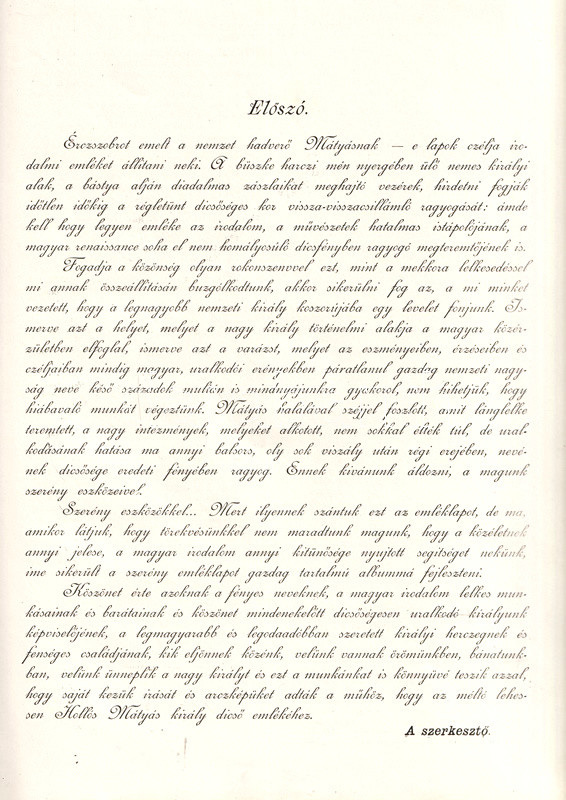 Előszó.
Érczszobrot emelt a nemzet hadverő Mátyásnak — e lapok czélja iro-
dalmi emléket állítani neki. A büszke harczi mén nyergében ülő nemes királyi
alak, a bástya alján diadalmas zászlaikat meghajtó vezérek, hirdetni fogják
időtlen időkig a régletünt dicsőséges kor vissza-visszacsillámló ragyogását: ámde
kell hogy legyen emléke az irodalom, a művészetek hatalmas istápolójának, a
magyar renaissance soha el nem homályosuló dicsfényben ragyogó megteremtőjének is.
Fogadja a közönség olyan rokonszenvvel ezt, mint a mekkora lelkesedéssel
mi annak összeállításán buzgólkodtunk, akkor sikerülni fog az, a mi minket
vezetett, hogy a legnagyobb nemzeti király koszorújába egy levelet fonjunk. Is-
merve azt a helyet, melyet a nagy király történelmi alakja a magyar közér-
zületben elfoglal, ismerve azt a varázst, melyet az eszményeiben, érzéseiben és
czéljaiban mindig magyar, uralkodói erényekben páratlanul gazdag nemzeti nagy-
ság neve késő századok multán is mindnyájunkra gyakorol, nem hihetjük, hogy
hiábavaló munkát végeztünk. Mátyás halálával széjjel foszlott, amit lánglelke
teremtett, a nagy intézmények, melyeket alkotott, nem sokkal élték túl, de ural-
kodásának hatása ma annyi balsors, oly sok viszály után régi erejében, nevé-
nek dicsősége eredeti fényében ragyog. Ennek kivánunk áldozni, a magunk
szerény eszközeivel.
Szerény eszközökkel... Mert ilyennek szántuk ezt az emléklapot, de ma,
amikor látjuk, hogy törekvésünkkel nem maradtunk magunk, hogy a közéletnek
annyi jelese, a magyar irodalom annyi kitünősége nyujtott segitséget nekünk,
ime sikerült a szerény emléklapot gazdag tartalmú albummá fejleszteni.
Köszönet érte azoknak a fényes neveknek, a magyar irodalom lelkes mun-
kásainak és barátainak és köszönet mindenekelőtt dicsőségesen uralkodó királyunk
képviselőjének, a legmagyarabb és legodaadóbban szeretett királyi herczegnek és
fenséges családjának, kik eljönnek közénk, velünk vannak örömünkben, bánatunk-
ban, velünk ünneplik a nagy királyt és ezt a munkánkat is könnyüvé teszik azzal,
hogy saját kezük irását és arczképüket adták a műhöz, hogy az méltó lehes-
sen Hollós Mátyás király dicső emlékéhez.
A szerkesztő.